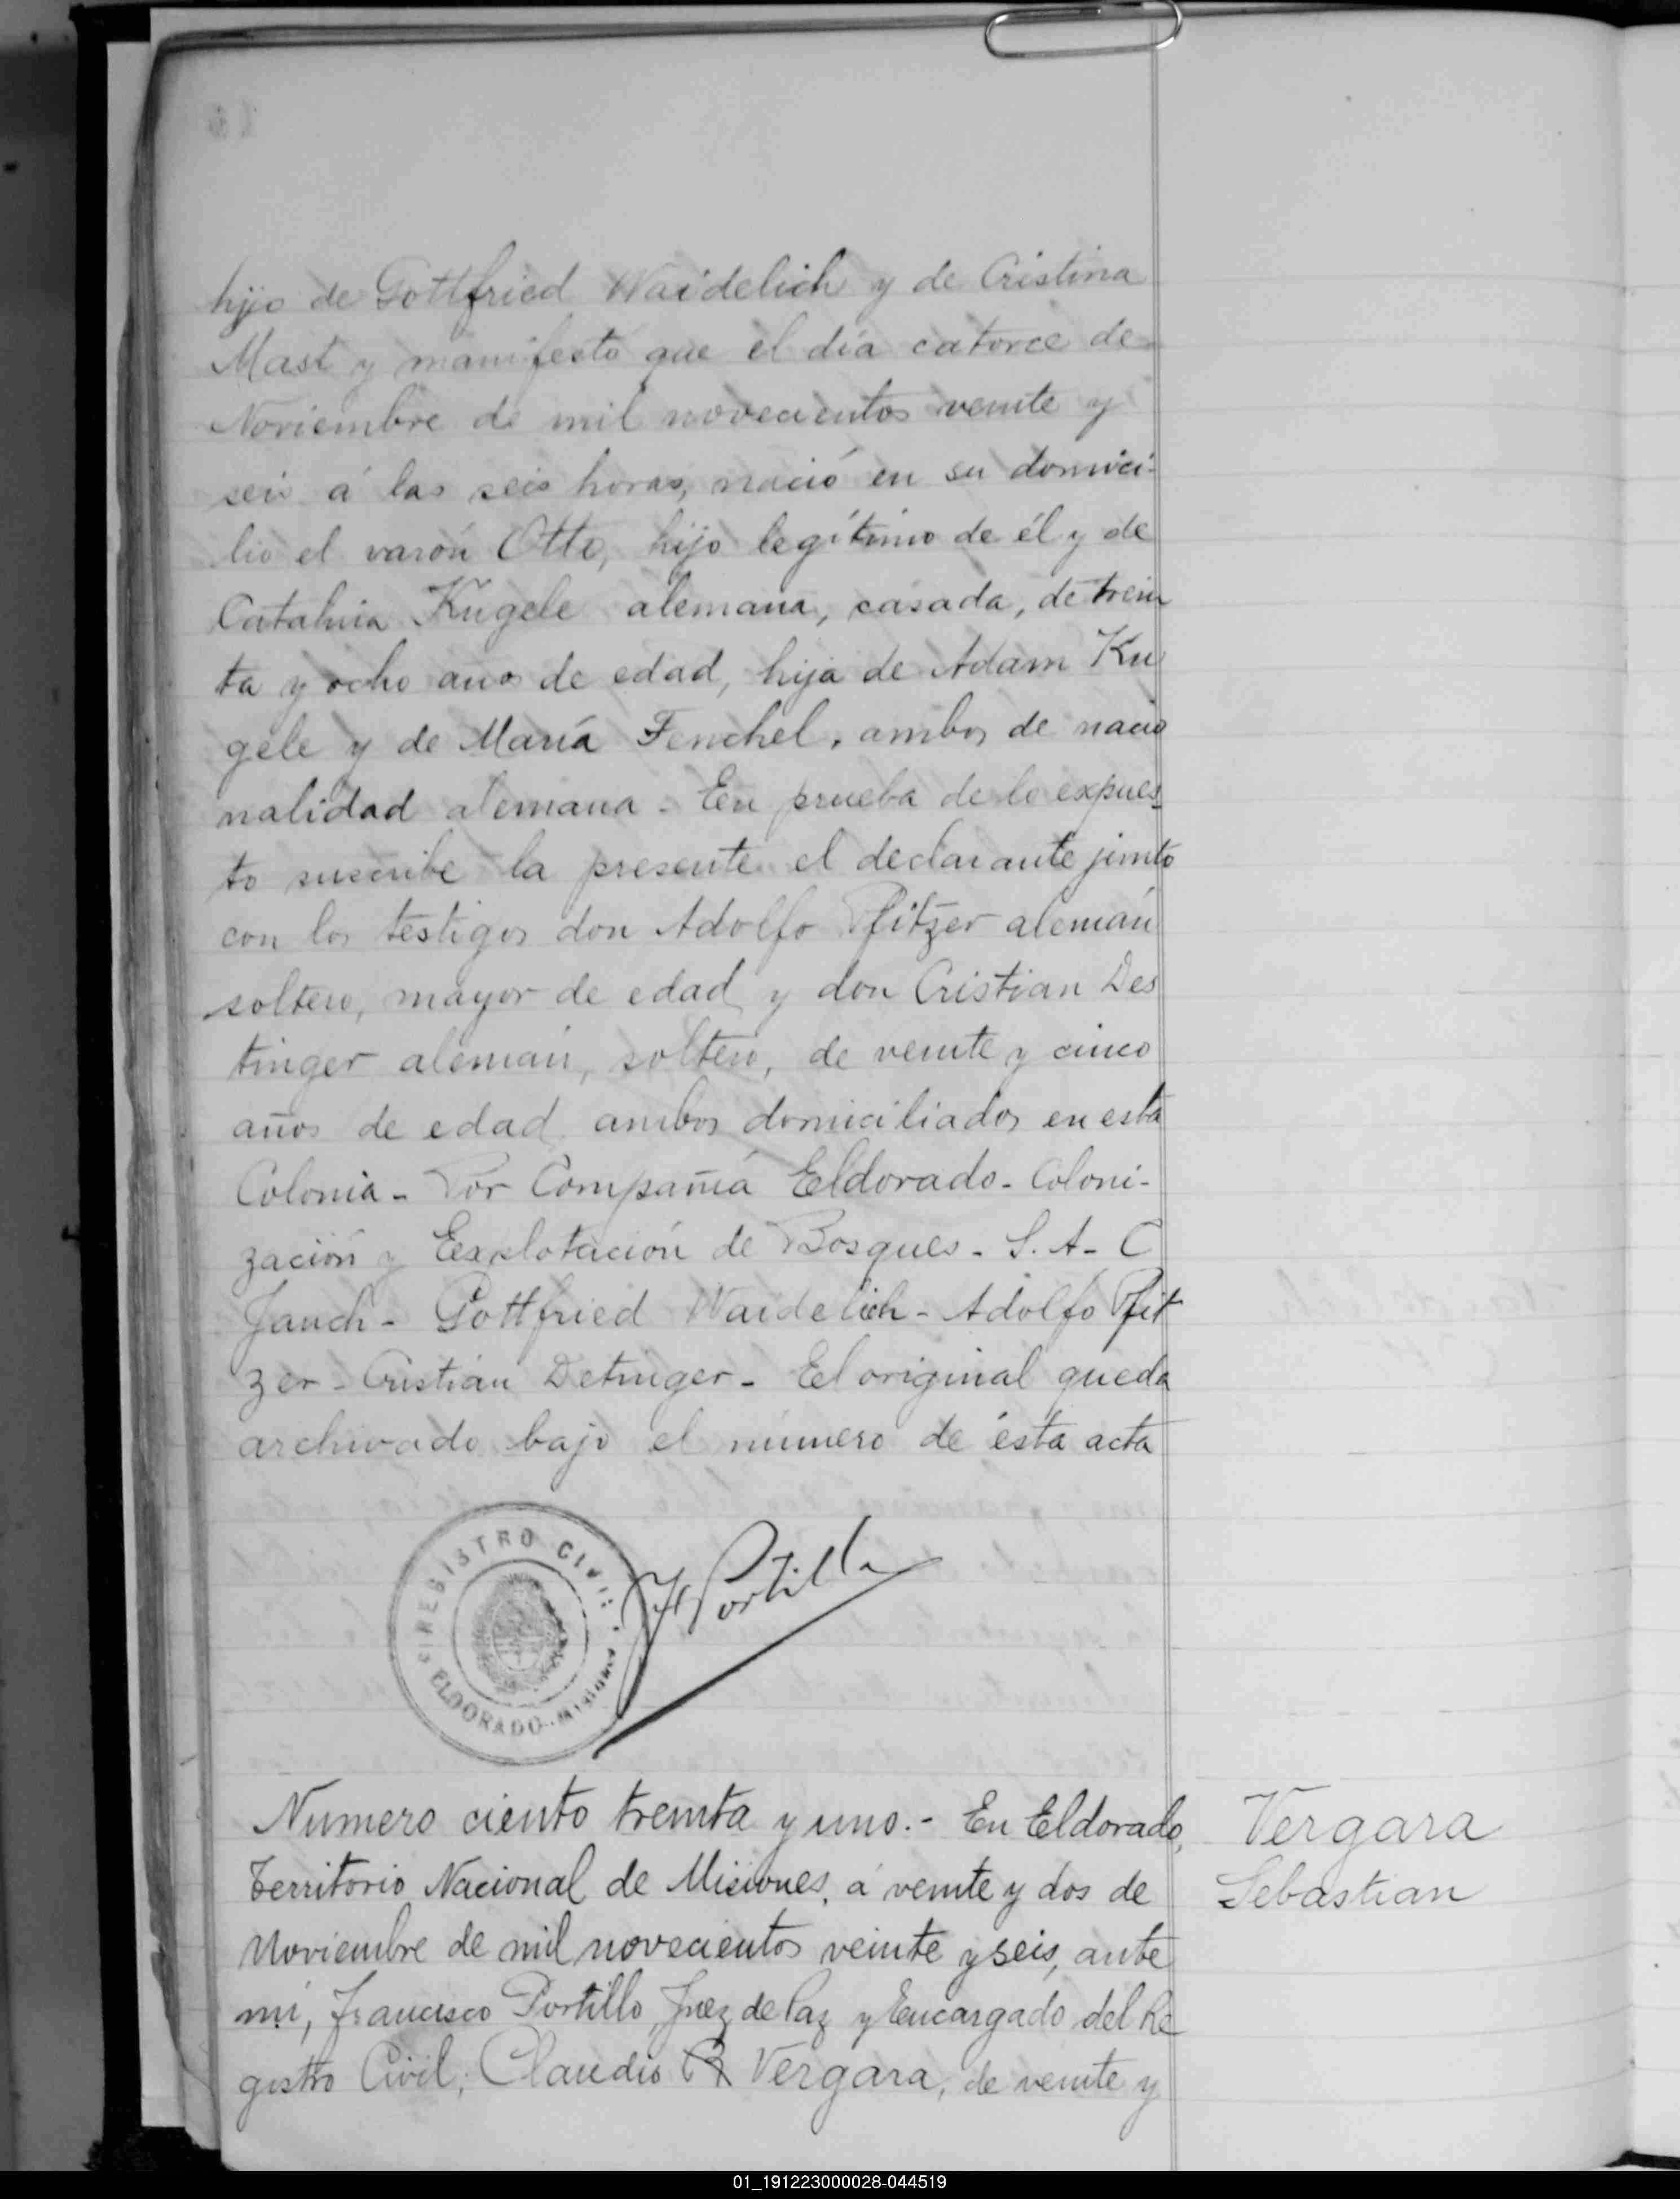 hijo de Gottfried Waidelich y de Cristina
Mast y manifestó que el día catorce de
Noviembre de mil novecientos veinte y
seis á las seis horas, nació en su domici-
lio el varón Otto, hijo legítimo de él y de
Catalina Kugele alemana, casada, de trein
ta y ocho años de edad, hija de Adam Ku
gele y de María Fenchel, ambos de nacio
nalidad alemana - En prueba de lo expues
to suscribe la presente el declarante junto
con los testigos don Adolfo Pfitzer alemán
soltero, mayor de edad y don Cristian Des
tinger alemán, soltero, de veinte y cinco
años de edad ambos domiciliados en esta
Colonia - Por Compañía Eldorado - Coloni-
zación y Explotación de Bosques - S. A - C
Jauch - Gottfried Waidelich - Adolfo Pfit
zer - Cristián Detinger - El original queda
archivado bajo el número de ésta acta
REGISTRO CIVIL
ELDORADO - Misiones
F Portillo
Numero ciento treinta y uno.- En Eldorado,
Vergara
Territorio Nacional de Misiones, á veinte y dos de
Sebastian
Noviembre de mil novecientos veinte y seis, ante
mí, Francisco Portillo, Juez de Paz y Encargado del Re
gistro Civil; Claudio R Vergara, de veinte y
01_191223000028-044519